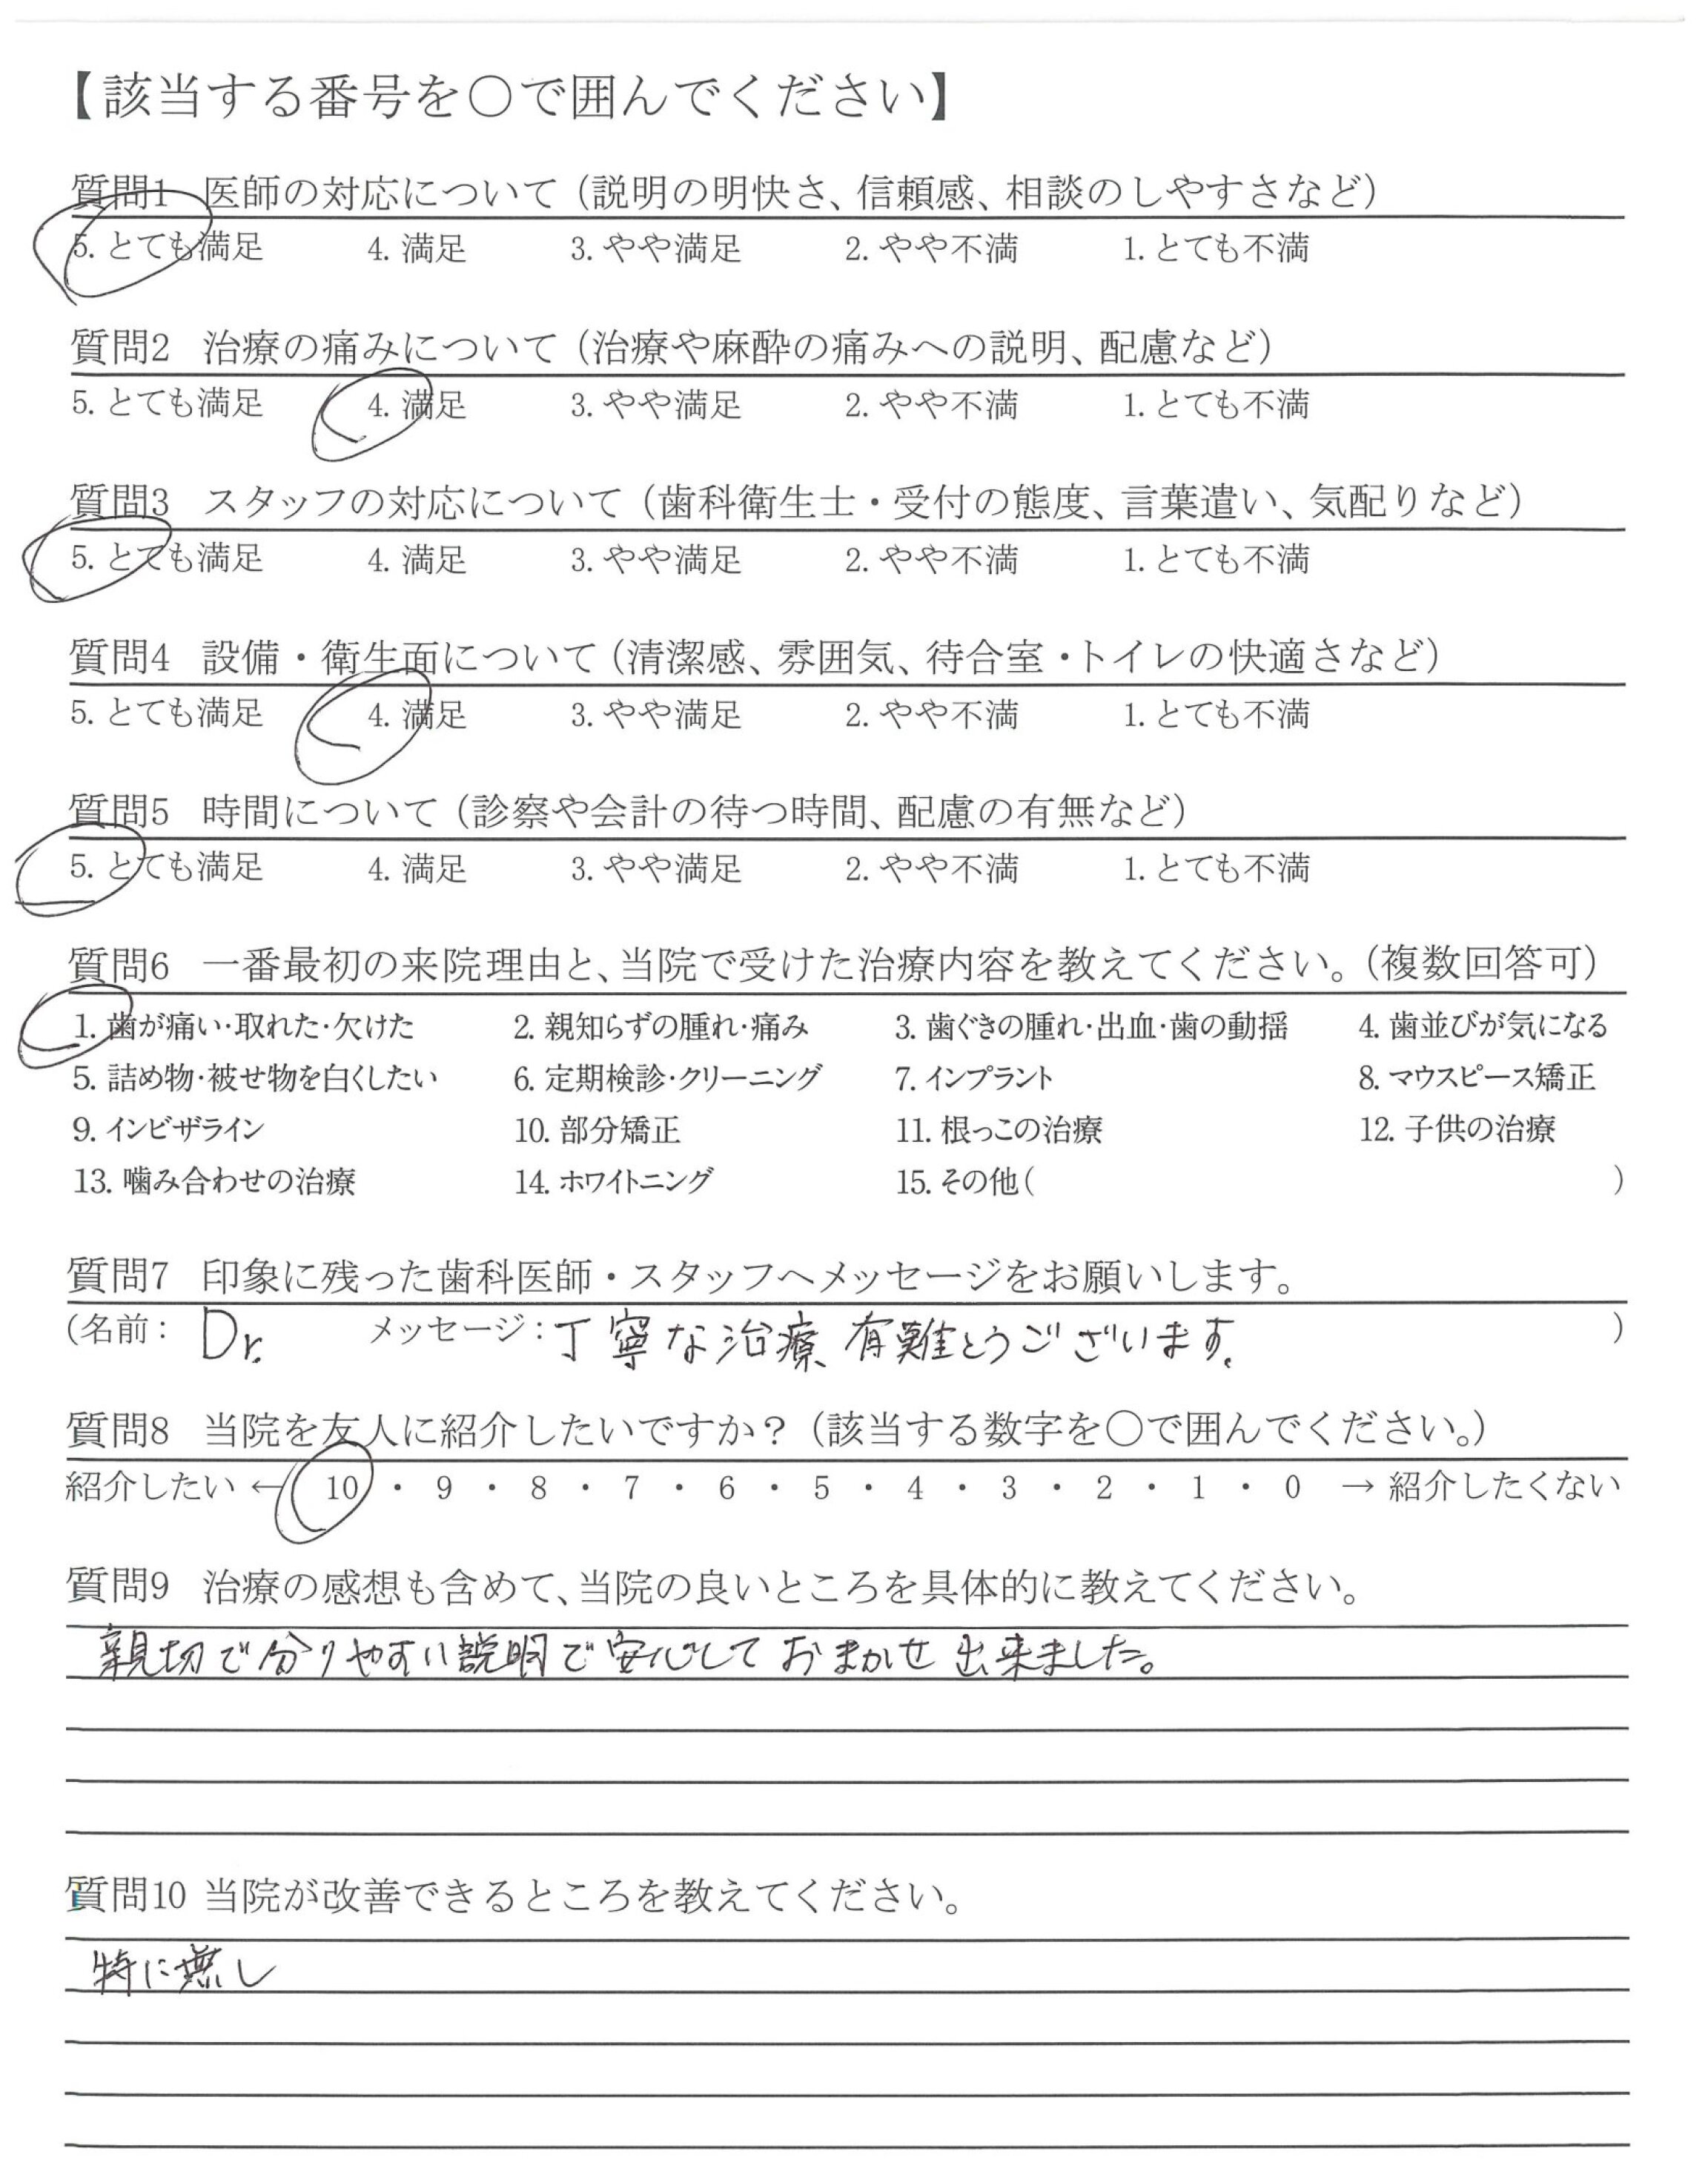 【該当する番号を○で囲んでください】
質問1 医師の対応について（説明の明快さ、信頼感、相談のしやすさなど）
5. とても満足 4. 満足 3. やや満足 2. やや不満 1. とても不満
質問2 治療の痛みについて（治療や麻酔の痛みへの説明、配慮など）
5. とても満足 4. 満足 3. やや満足 2. やや不満 1. とても不満
質問3 スタッフの対応について（歯科衛生士・受付の態度、言葉遣い、気配りなど）
5. とても満足 4. 満足 3. やや満足 2. やや不満 1. とても不満
質問4 設備・衛生面について（清潔感、雰囲気、待合室・トイレの快適さなど）
5. とても満足 4. 満足 3. やや満足 2. やや不満 1. とても不満
質問5 時間について（診察や会計の待つ時間、配慮の有無など）
5. とても満足 4. 満足 3. やや満足 2. やや不満 1. とても不満
質問6 一番最初の来院理由と、当院で受けた治療内容を教えてください。（複数回答可）
1. 歯が痛い・取れた・欠けた 2. 親知らずの腫れ・痛み 3. 歯ぐきの腫れ・出血・歯の動揺 4. 歯並びが気になる
5. 詰め物・被せ物を白くしたい 6. 定期検診・クリーニング 7. インプラント 8. マウスピース矯正
9. インビザライン 10. 部分矯正 11. 根っこの治療 12. 子供の治療
13. 噛み合わせの治療 14. ホワイトニング 15. その他（ ）
質問7 印象に残った歯科医師・スタッフへメッセージをお願いします。
（名前： Dr. メッセージ：丁寧な治療 有難とうございます。 ）
質問8 当院を友人に紹介したいですか？（該当する数字を○で囲んでください。）
紹介したい ← 10 ・ 9 ・ 8 ・ 7 ・ 6 ・ 5 ・ 4 ・ 3 ・ 2 ・ 1 ・ 0 → 紹介したくない
質問9 治療の感想も含めて、当院の良いところを具体的に教えてください。
親切で分りやすい説明で安心しておまかせ出来ました。
質問10 当院が改善できるところを教えてください。
特に無し